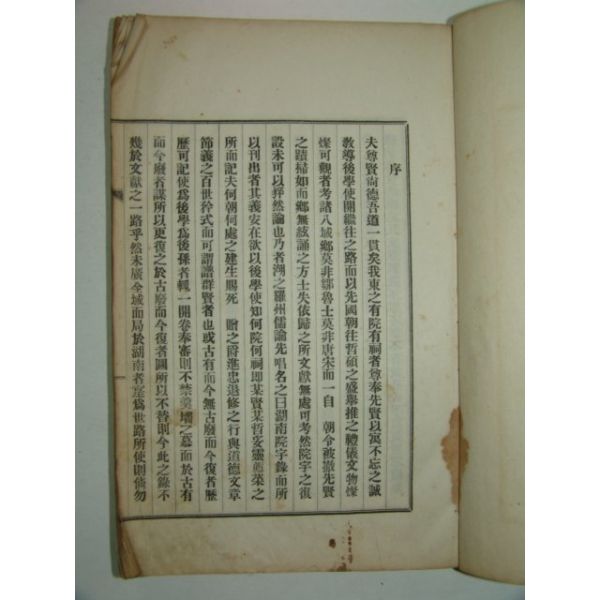 序
夫尊賢尙德吾道一貫矣我東之有院有祠者尊奉先賢以寓不忘之誠
敎導後學使開繼往之路而以先國朝往哲碩之盛擧推之禮儀文物燦
燦可觀者考諸八域鄕莫非鄒魯士莫非唐宋而一自 朝令被撤先賢
之蹟掃如而鄕無絃誦之方士失依歸之所文獻無處可考然院宇之復
設未可以猝然論也乃者湖之羅州儒論先唱名之曰湖南院宇錄而所
以刊出者其義安在欲以後學使知何院何祠卽某賢某哲妥靈薦菜之
所而記夫何朝何處之建生賜死 贈之爵進忠退修之行與道德文章
節義之百世矜式而可謂譜群賢者也或古有而今無古廢而今復者歷
歷可記使爲後學爲後孫者輒一開卷奉審則不禁羹墻之慕而於古有
而今廢者謀所以更復之於古廢而今復者圖所以不替則今此之錄不
幾於文獻之一路乎然未廣全域而局於湖南者寔爲世路所使則倘勿